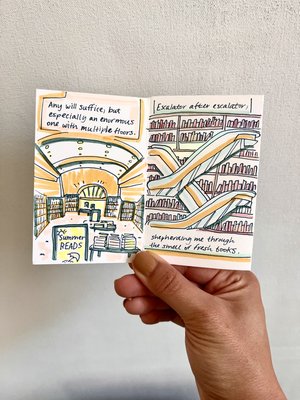 Any will suffice, but
especially an enormous
one with multiple floors.
Summer
READS
Escalator after escalator,
shepherding me through
the smell of fresh books.